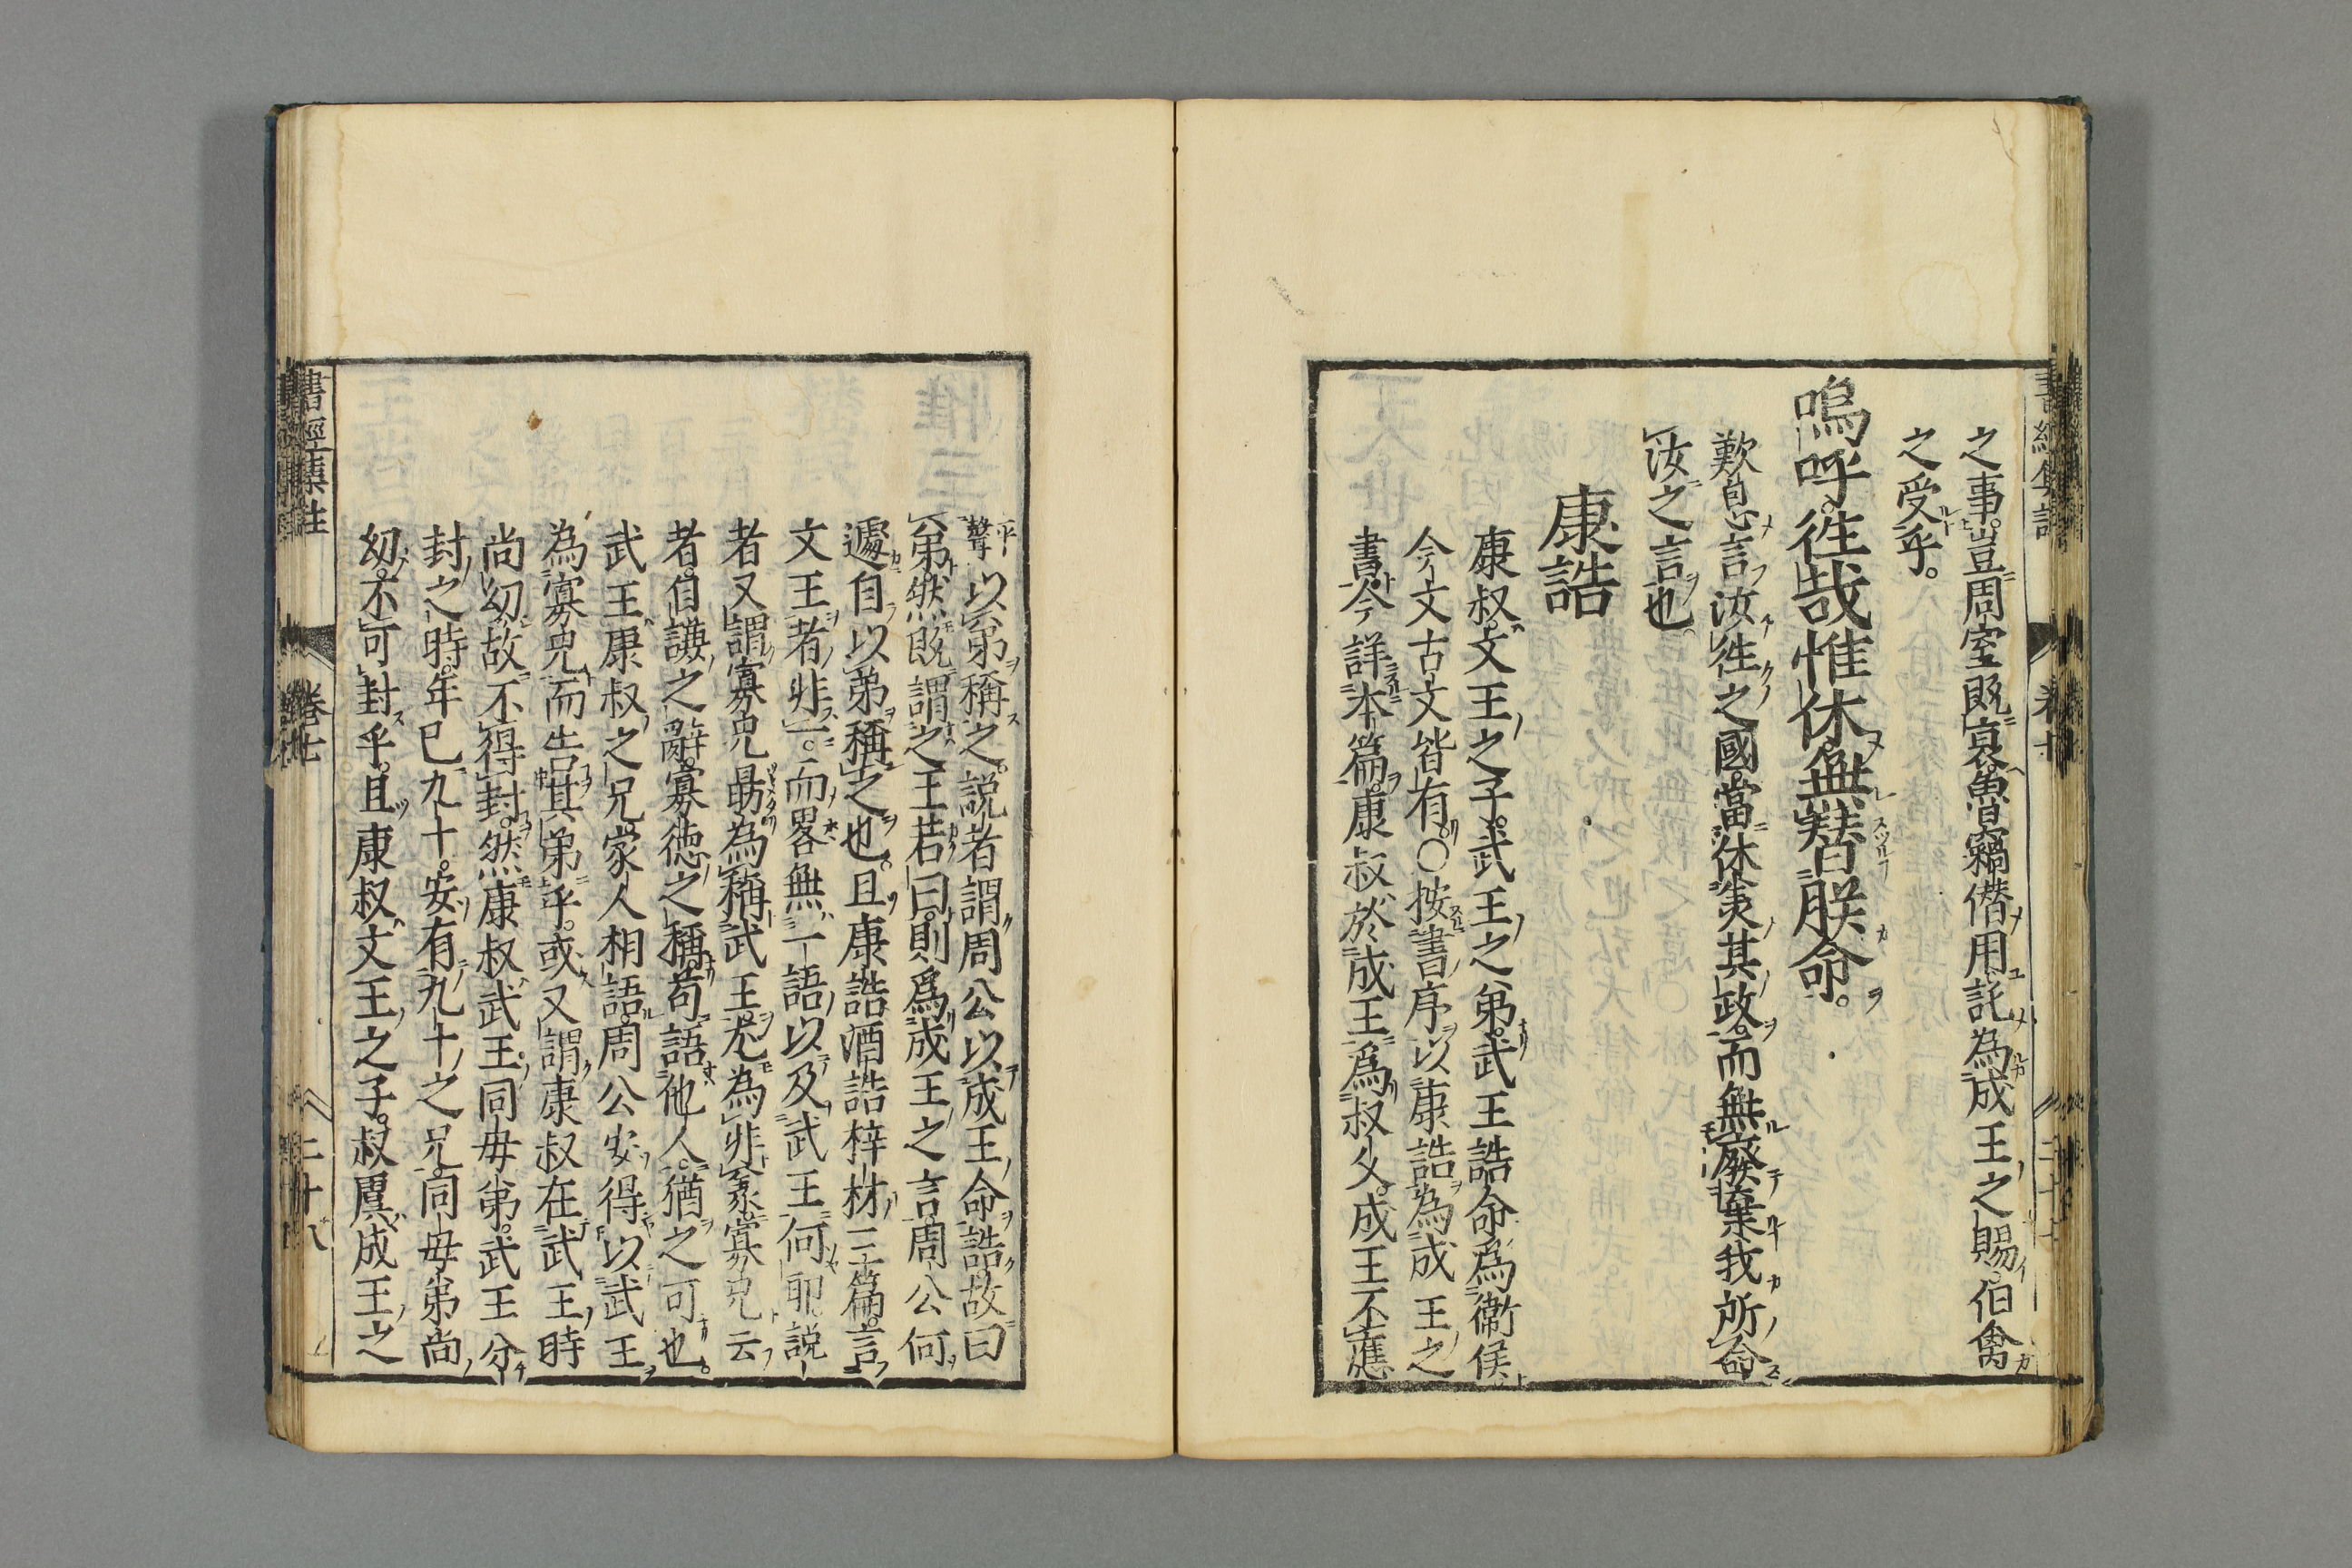 之事。豈周室既衰。魯竊僭用。託為成王之賜。伯禽
之受乎。
嗚呼。徃哉惟休。無替朕命。
歎息言汝徃之國。當休美其政。而無廢棄我所命
汝之言也。
康誥
康叔。文王之子。武王之弟。武王誥命爲衞侯
今文古文皆有。〇按書序以康誥為成王之
書。今詳本篇。康叔於成王爲叔父。成王不應
以弟稱之。説者謂周公以成王命誥。故曰
弟。然既謂之王若曰。則爲成王之言。周公何
遽自以弟稱之也。且康誥酒誥梓材三篇。言
文王者非一。而畧無一語以及武王何耶。説
者又謂寡兄勗為稱武王。尤為非義。寡兄云
者。自謙之辭。寡徳之稱。苟語他人。猶之可也。
武王康叔之兄。家人相語。周公安得以武王
為寡兄。而告其弟乎。或又謂康叔在武王時
尚幼。故不得封。然康叔武王同毋弟。武王分
封之時。年已九十。安有九十之兄。同毋弟尚
幼。不可封乎。且康叔文王之子。叔虞成王之
書經集註
卷七
二十八